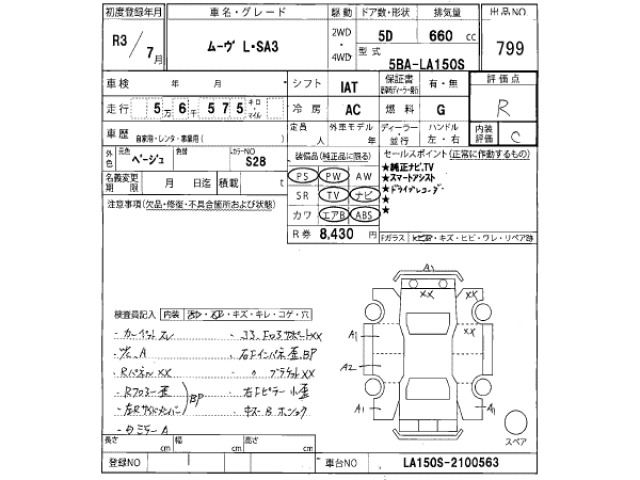 初度登録年月 車名・グレード 駆動 ドア数・形状 排気量 出品NO
R3/7月 ムーヴ L・SA3 2WD・4WD 5D 660 cc 799
型式 5BA-LA150S
車検 年 月 シフト IAT 保証書 有・無 評価点
走行 5万6千575 キロ・マイル 冷房 AC 燃料 G R
車歴 自家用・レンタ・事業用( ) 定員 人 外車モデル 年 ディーラー・並行 ハンドル 左・右 内装評価 C
外色 元色 ベージュ 色替 カラーNO S28 装備品(純正品に限る) セールスポイント(正常に作動するもの)
名義変更期限 月 日迄 積載 t PS PW AW ★純正ナビ,TV
★スマートアシスト
注意事項(欠品・修復・不具合箇所および状態) SR TV ナビ ★ドライブレコーダー
★
カワ エアB ABS ★
R券 8,430 円 Fガラス ヒビR・キズ・ヒビ・ワレ・リペア跡
A1
XX XX
検査員記入 内装 ・キズ・キレ・コゲ・穴
・カーペットスレ ・コアサポートXX A1 XX
・ガラス A ・右Fインパネ歪、BP
・RパネルXX ・〃 ブラケットXX A2
・Rフロアー歪 ・右Fピラー小歪
・左Rサイドメンバー BP A1 A1
・ダミラー A
長さ cm 幅 cm 高さ cm スペア
登録NO 車台NO LA150S-2100563